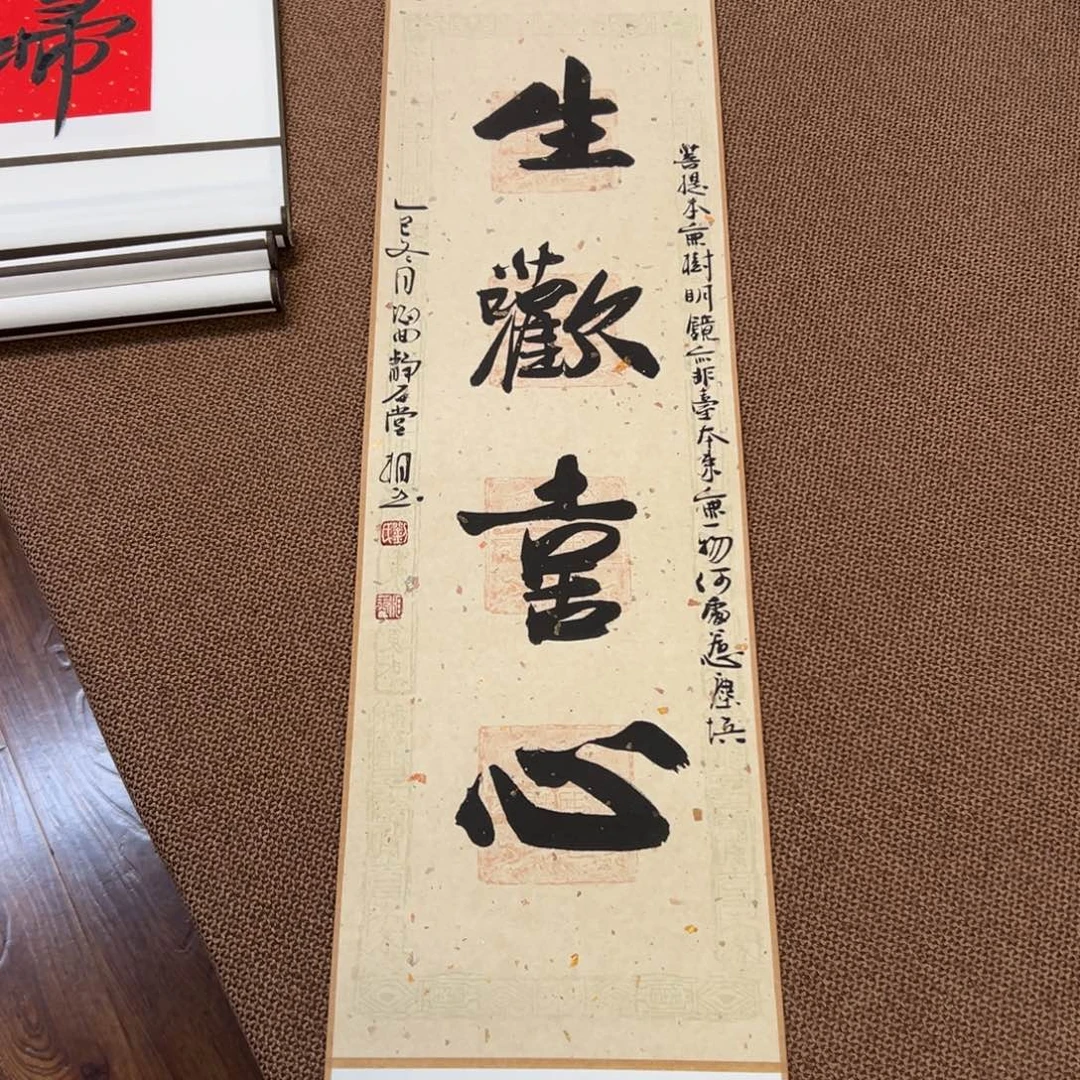 菩提本無樹明鏡亦非臺本來無一物何處惹塵埃
生歡喜心
乙巳冬月靜石堂